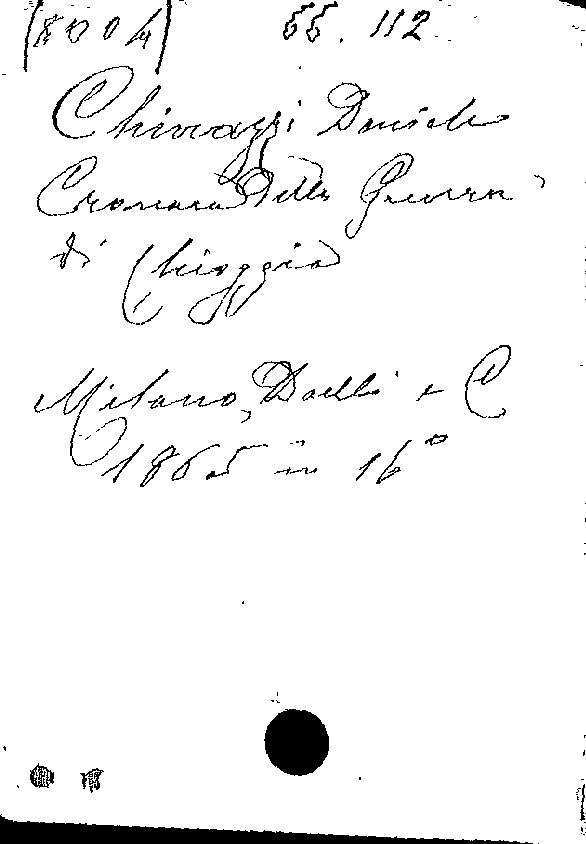 (8004) 55.112
Chinazzi Daniele
Cronaca della Guerra
di Chioggia
Milano, Daelli e C
1865 in 16°